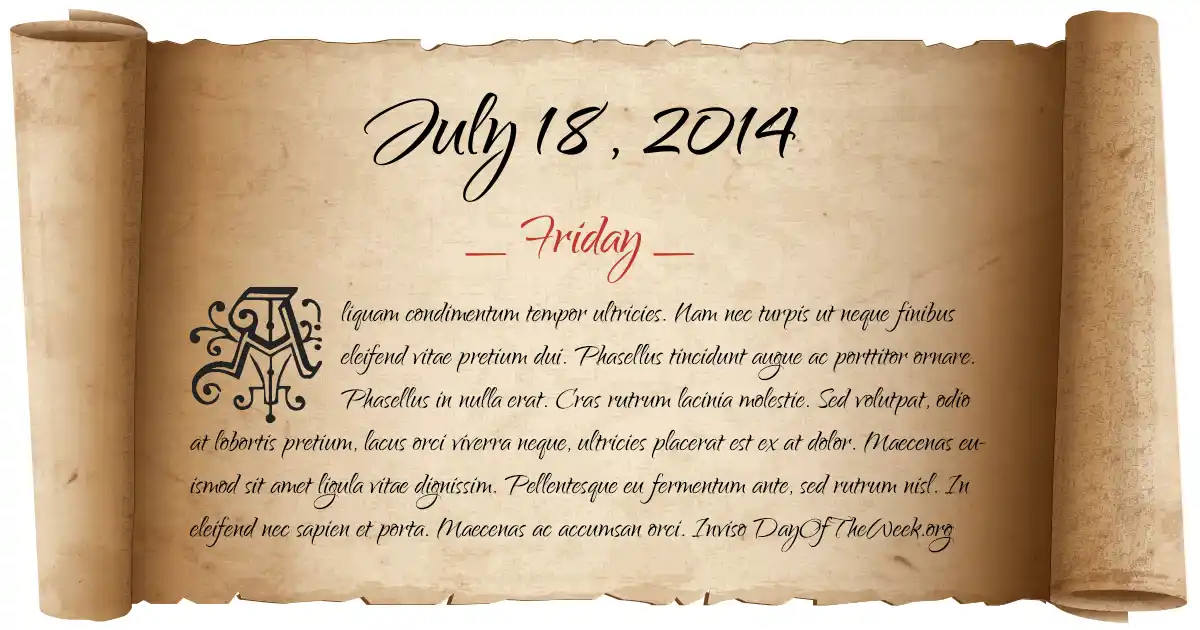 July 18, 2014
_ Friday _
Aliquam condimentum tempor ultricies. Nam nec turpis ut neque finibus
eleifend vitae pretium dui. Phasellus tincidunt augue ac porttitor ornare.
Phasellus in nulla erat. Cras rutrum lacinia molestie. Sed volutpat, odio
at lobortis pretium, lacus orci viverra neque, ultricies placerat est ex at dolor. Maecenas eu-
ismod sit amet ligula vitae dignissim. Pellentesque eu fermentum ante, sed rutrum nisl. In
eleifend nec sapien et porta. Maecenas ac accumsan orci. Inviso DayOfTheWeek.org